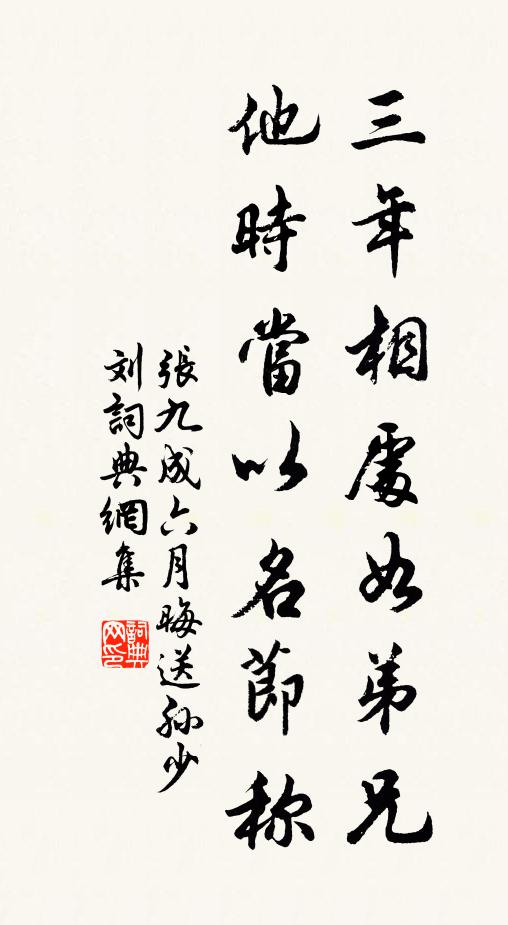 三年相處如弟兄
他時當以名節称
張九成六月晦送孙少
刘詞典網集
詞典網印